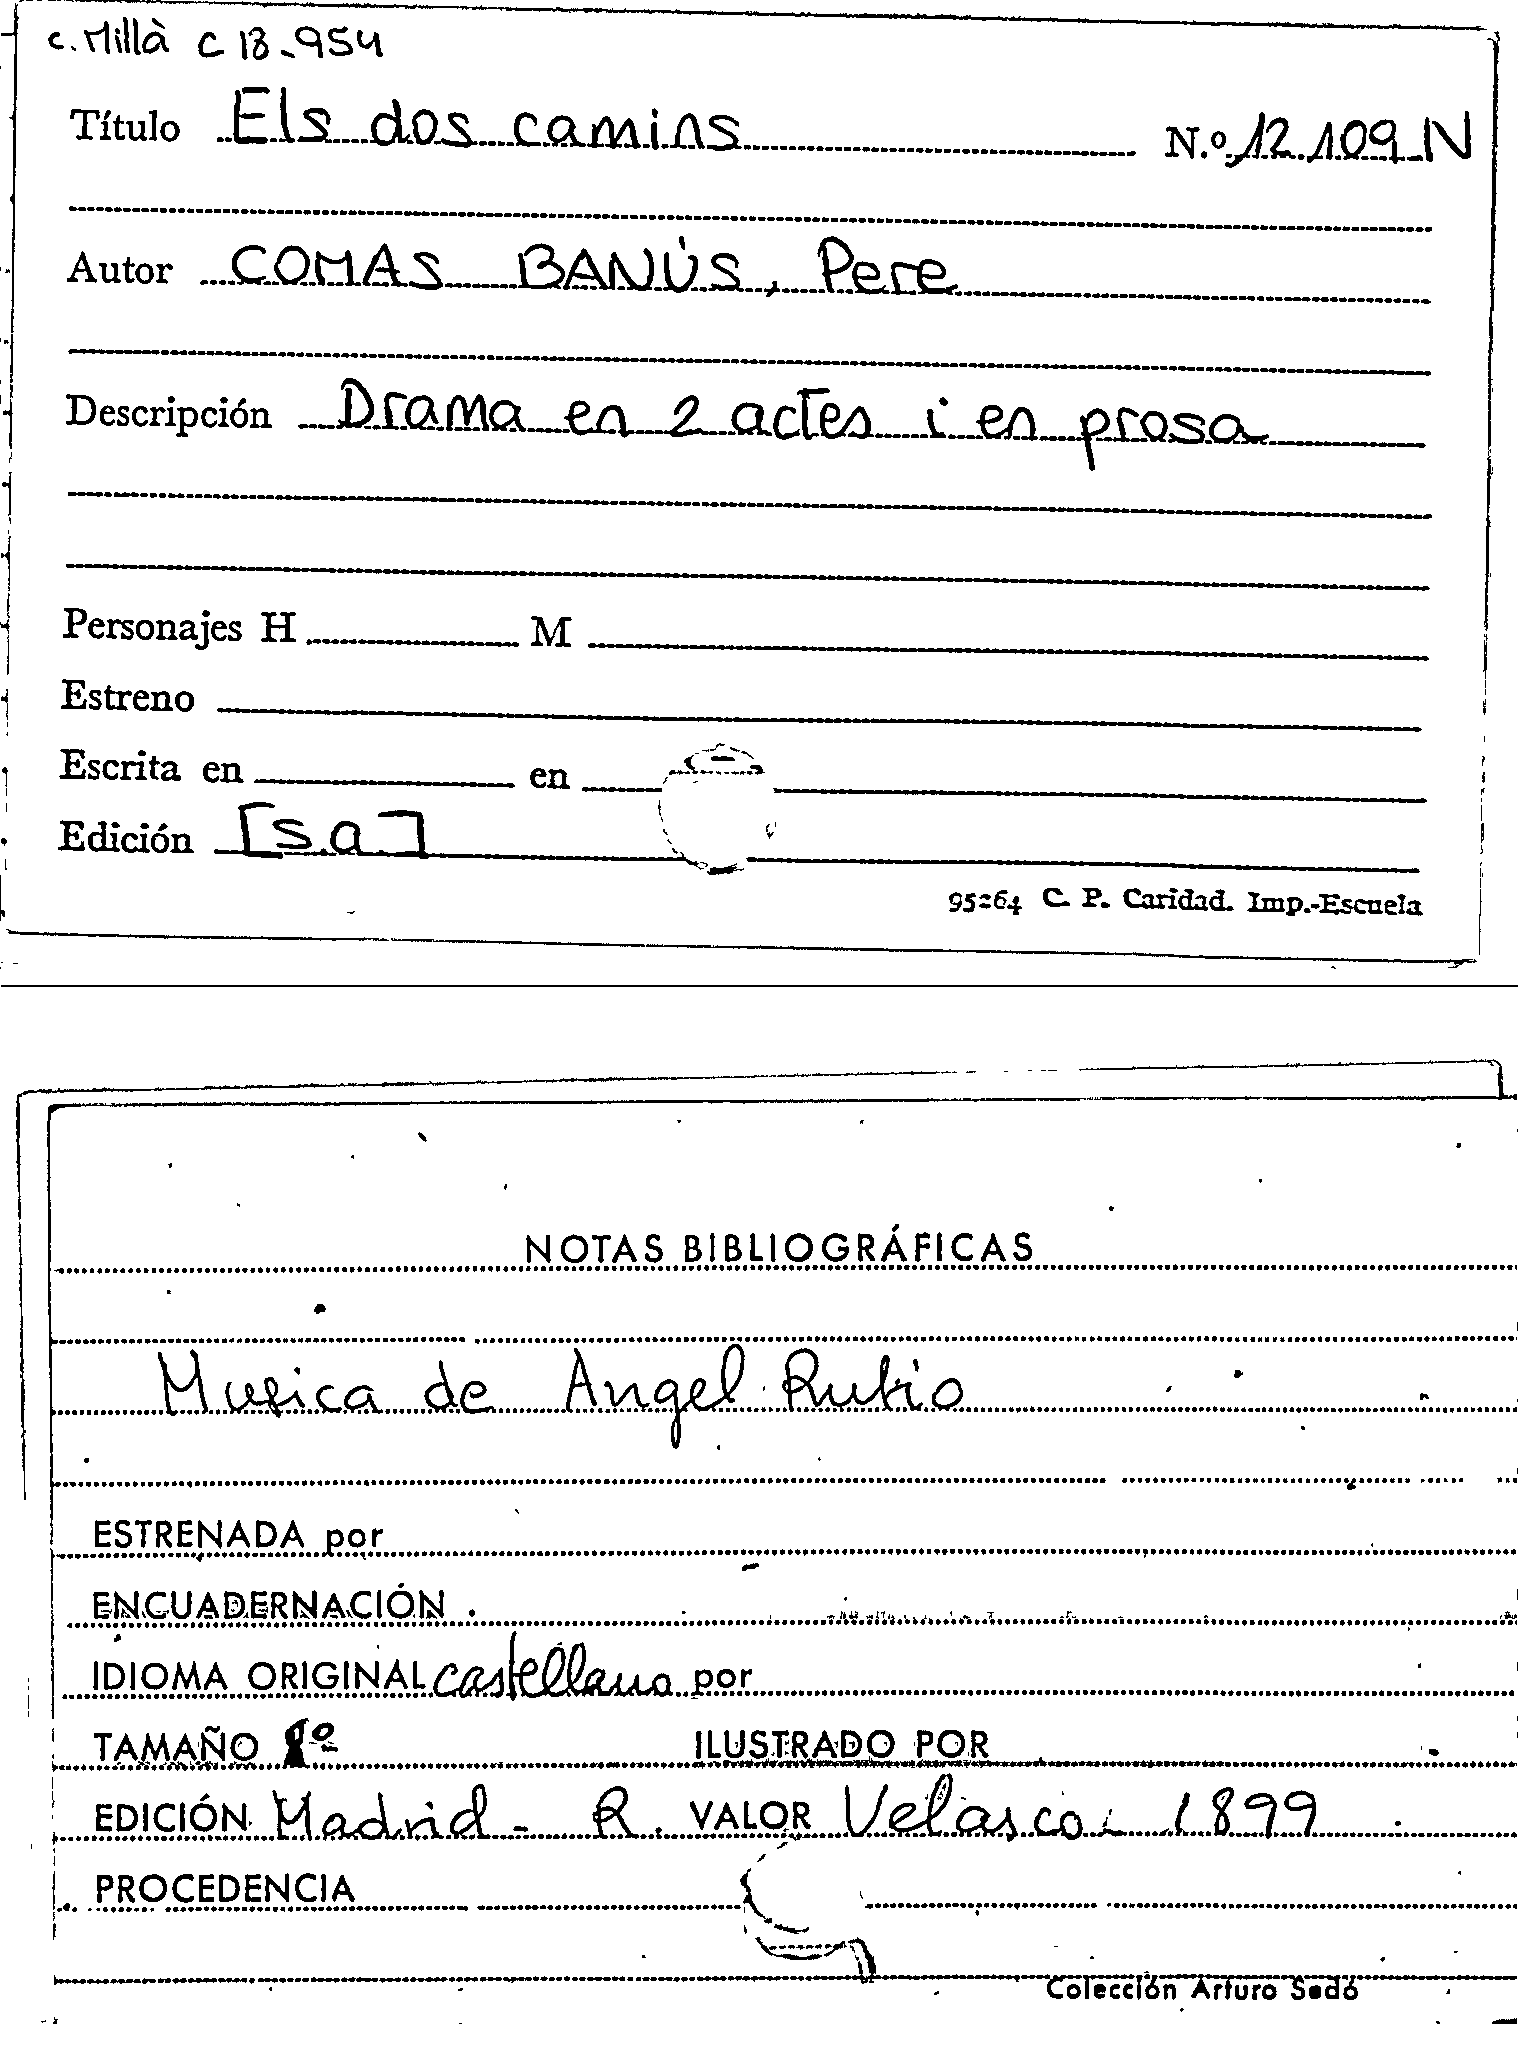 c. Millà C 13.954
Título Els dos camins N.º 12.109 N
Autor COMAS BANÚS, Pere
Descripción Drama en 2 actes i en prosa
Personajes H M
Estreno
Escrita en en
Edición [s.a]
95264 C. P. Caridad. Imp.-Escuela
NOTAS BIBLIOGRÁFICAS
Musica de Angel Rubio
ESTRENADA por
ENCUADERNACIÓN
IDIOMA ORIGINAL castellano por
TAMAÑO 8º ILUSTRADO POR
EDICIÓN Madrid - R. VALOR Velasco. 1899
PROCEDENCIA
Colección Arturo Sedó